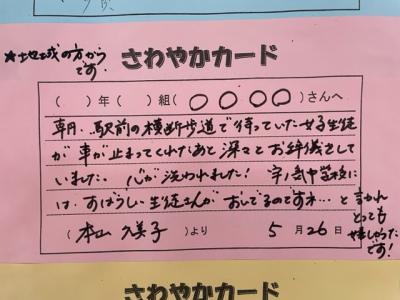 さわやかカード
★地域の方から
です!
( )年( )組(○○○○)さんへ
駅前の横断歩道で待っていた女子生徒
が車が止まってくれたあと深々とお辞儀をして
いました。心が洗われました! 宇ノ気中学校に
は、すばらしい生徒さんがおいでるのですネ…と
言われ
とっても
嬉しかった
です!
(本山 久美子)より 5月26日
さわやかカード